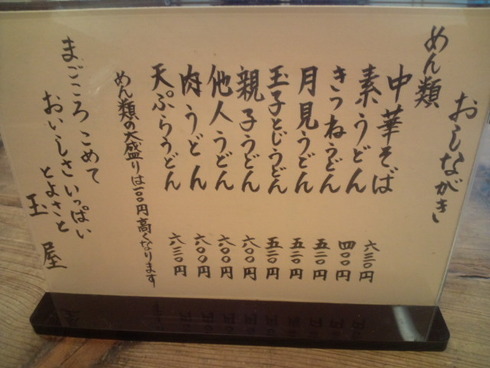 おしながき
めん類
中華そば 六三〇円
素うどん 四〇〇円
きつねうどん 五二〇円
月見うどん 五二〇円
玉子とじうどん 五二〇円
親子うどん 六〇〇円
他人うどん 六〇〇円
肉うどん 六〇〇円
天ぷらうどん 六三〇円
めん類の大盛りは一〇〇円高くなります
まごころこめて
おいしさいっぱい
とよさと
玉屋